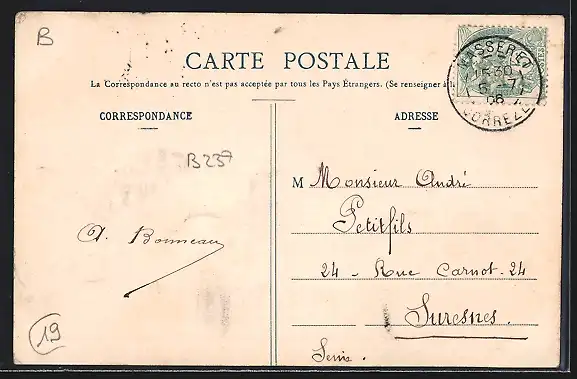 B
CARTE POSTALE
La Correspondance au recto n'est pas acceptée par tous les Pays Étrangers. (Se renseigner à l
CORRESPONDANCE
ADRESSE
15 30
6 - 7
06
CORREZE
B237
M Monsieur André
Petitfils
A. Bonneau
24 - Rue Carnot - 24
Suresnes.
Seine.
19